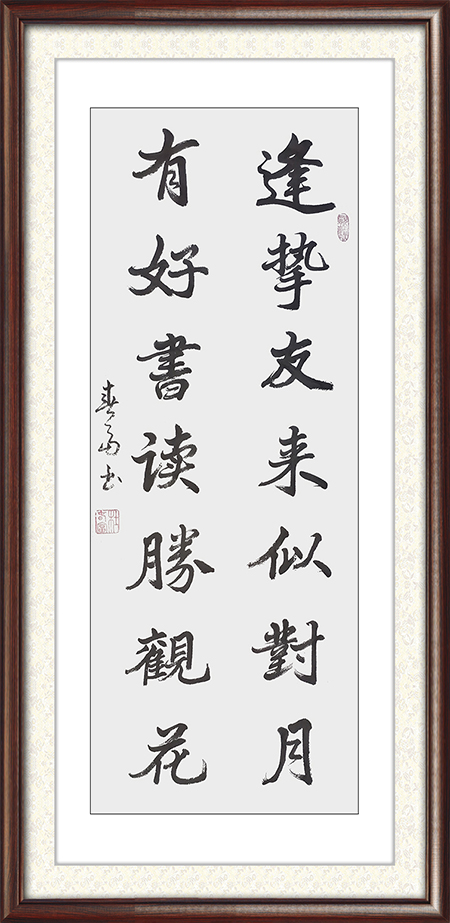 逢挚友来似對月
有好書读勝觀花